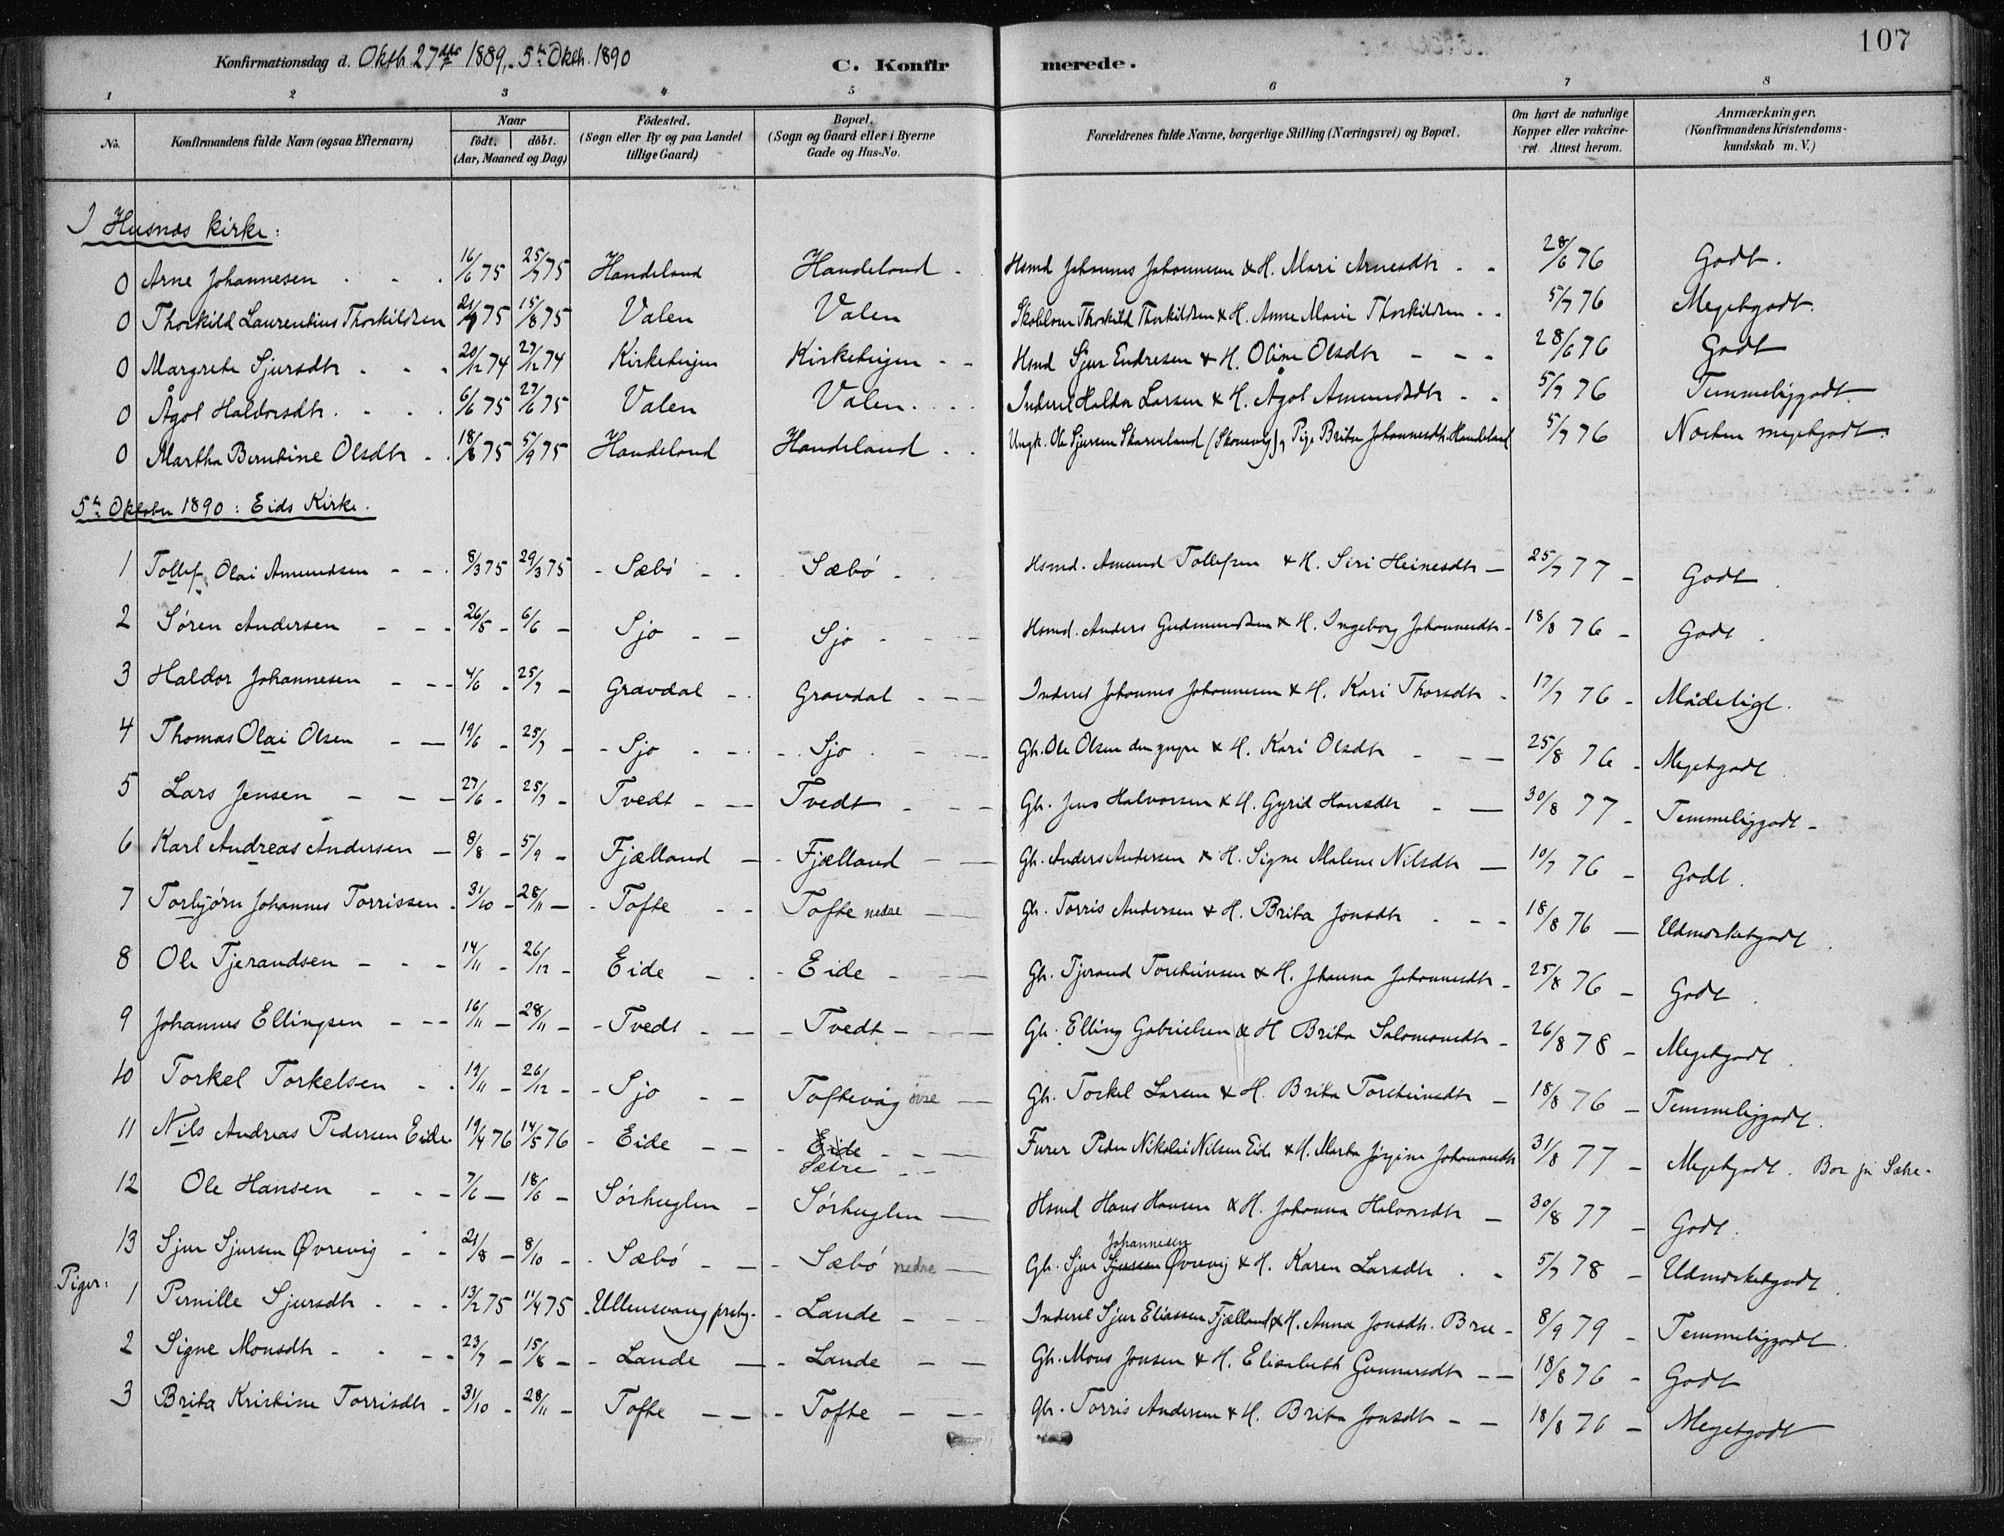 107
Konfirmationsdag d. Oktb. 27de 1889, 5te Oktb. 1890 C. Konfirmerede.
1 2 3 4 5 6 7 8
No. Konfirmandens fulde Navn (ogsaa Efternavn) Naar født. døbt. (Aar, Maaned og Dag) Födested. (Sogn eller By og paa Landet tillige Gaard) Bopæl. (Sogn og Gaard eller i Byerne Gade og Hus-No. Forældrenes fulde Navne, borgerlige Stilling (Næringsvei) og Bopæl. Om havt de naturlige Kopper eller vakcineret. Attest herom. Anmærkninger. (Konfirmandens Kristendomskundskab m. V.)
I Husnæs kirke:
0 Arne Johannesen 16/6 75 25/7 75 Handeland Handeland Hsmd Johannes Johannesen & H. Mari Arnesdtr 28/6 76 Godt.
0 Thorkild Laurentius Thorkildsen 75 15/8 75 Valen Valen Thorkild Thorkildsen & H. Anne Marie Thorkildsen 5/7 76 Megetgodt.
0 Margrete Sjursdtr 20/12 74 27/12 74 Kirkehujen Kirkehujen Hsmd Sjur Endresen & H. Oline Olsdtr 28/6 76 Godt
0 Ågot Haldorsdtr. 6/6 75 27/6 75 Valen Valen. Inderst Haldor Larsen & H. Ågot Amundsdtr 5/7 76 Temmeliggodt.
0 Martha Berntine Olsdtr 18/8 75 5/9 75 Handeland Handeland Ungk. Ole Sjursen Skarveland (Skonevig), Pige Brita Johannesdtr. Handeland 5/7 76 Næsten megetgodt.
5te Oktober 1890: Eids Kirke.
1 Tollef Olai Amundsen 8/3 75 29/3 75 Sæbø Sæbø Hsmd. Amund Tollefsen & H. Siri Heinesdtr 25/7 77 Godt.
2 Søren Andersen 26/5 - 6/6 - Sjo Sjo Hsmd. Anders Gudmundsen & H. Ingeborg Johannesdtr 18/8 76 Godt.
3 Haldor Johannesen 4/6 - 25/7 - Gravdal Gravdal Inderst Johannes Johannesen & H. Kari Thorsdtr 17/7 76 Mådeligt.
4 Thomas Olai Olsen 19/6 - 25/7 - Sjo Sjo Gb. Ole Olsen den yngre & H. Kari Olsdtr 25/8 76 Megetgodt
5 Lars Jensen 27/6 - 25/7 - Tvedt Tvedt Gb. Jens Halvorsen & H. Gyrid Hansdtr 30/8 77 Temmeliggodt
6 Karl Andreas Andersen 8/8 - 5/9 - Fjælland Fjælland Gb. Anders Andersen & H. Signe Malene Nilsdtr 10/7 76 Godt.
7 Torbjørn Johannes Torrissen 31/10 - 28/11 - Tofte Tofte nedre Gb. Torris Andersen & H. Brita Jonsdtr 18/8 76 Udmærketgodt.
8 Ole Tjerandsen 14/11 - 26/12 - Eide Eide Gb. Tjerand Torsteinsen & H. Johanna Johannesdtr 25/8 76 Godt.
9 Johannes Ellingsen 16/11 - 28/11 - Tvedt Tvedt Gb. Elling Gabrielsen & H Brita Salomonsdtr 26/8 78 Megetgodt.
10 Torkel Torkelsen 19/11 - 26/12 - Sjo Toftevåg øvre Gb. Torkel Larsen & H. Brita Torsteinsdtr 18/8 76 Temmeliggodt.
11 Nils Andreas Pedersen Eide 19/4 76 14/5 76 Eide Eide Sætre Furer Peder Nikolai Nilsen Eide & H. Marta Jørgine Johannesdtr 31/8 77 Megetgodt. Bor på Sætre.
12 Ole Hansen 7/6 - 18/6 - Sørhuglen Sørhuglen Hsmd Hans Hansen & H. Johanna Halvorsdtr 30/8 77 Godt.
13 Sjur Sjursen Øvrevig 21/8 - 8/10 - Sæbø Sæbø nedre Gb. Sjur Sjursen Johannesen Øvrevig & H. Karen Larsdtr 5/7 78 Udmærketgodt
Piger: 1 Pernille Sjursdtr 13/2 75 11/4 75 Ullensvang prstg. Lande Inderst Sjur Eliassen Fjælland & H. Anna Jonsdtr. Bru 8/9 79 Temmeliggodt.
2 Signe Monsdtr 23/7 - 15/8 - Lande Lande Gb. Mons Jonsen & H. Elisabeth Gunnarsdtr 18/8 76 Godt
3 Brita Kristine Torrisdtr 31/10 - 28/11 - Tofte Tofte Gb. Torris Andersen & H. Brita Jonsdtr 18/8 76 Megetgodt